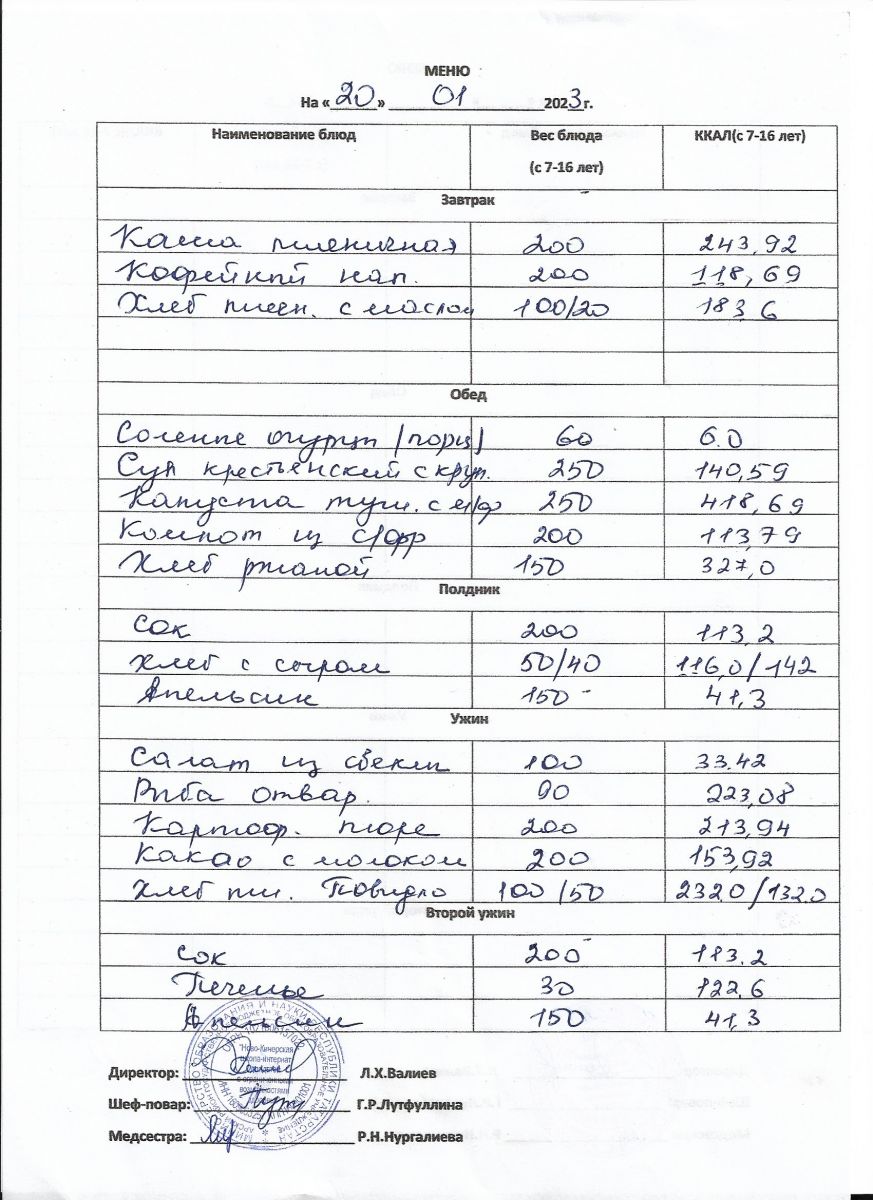 МЕНЮ
На «20» 01 2023г.
Наименование блюд Вес блюда (с 7-16 лет) ККАЛ(с 7-16 лет)
Завтрак
Каша пшеничная 200 243,92
Кофейный нап. 200 118,69
Хлеб пшен. с маслом 100/20 183 6
Обед
Соленые огурцы (порц) 60 6.0
Суп крестьянский с круп. 250 140,59
Капуста туш. с м/ф 250 418,69
Компот из с/фр 200 113,79
Хлеб ржаной 150 327,0
Полдник
Сок 200 113,2
Хлеб с сыром 50/40 116,0/142
Апельсин 150 41,3
Ужин
Салат из свеклы 100 33.42
Рыба отвар. 90 223,08
Картоф. пюре 200 213,94
Какао с молоком 200 153,92
Хлеб пш. Повидло 100/50 232.0/132.0
Второй ужин
Сок 200 113.2
Печенье 30 122.6
Апельсин 150 41,3
Директор: Л.Х.Валиев
Шеф-повар: Г.Р.Лутфуллина
Медсестра: Р.Н.Нургалиева
"Ново-Кинерская
школа-интернат